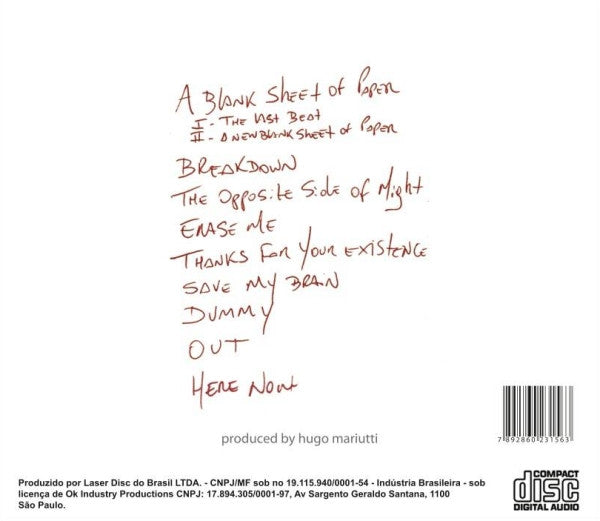 A BLANK SHEET OF PAPER
I - THE LAST BEAT
II - A NEW BLANK SHEET OF PAPER
BREAKDOWN
THE OPPOSITE SIDE OF MIGHT
ERASE ME
THANKS FOR YOUR EXISTENCE
SAVE MY BRAIN
DUMMY
OUT
HERE NOW
produced by hugo mariutti
7 892860 231563
Produzido por Laser Disc do Brasil LTDA. - CNPJ/MF sob no 19.115.940/0001-54 - Indústria Brasileira - sob
licença de Ok Industry Productions CNPJ: 17.894.305/0001-97, Av Sargento Geraldo Santana, 1100
São Paulo.
COMPACT
disc
DIGITAL AUDIO